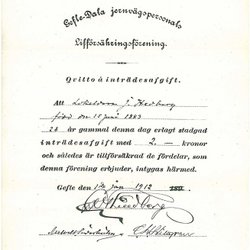 Gefle-Dala jernvägspersonals
Lifförsäkringsförening.
Qvitto å inträdesafgift.
Att Lokeldaren J. Hedberg
född den 15 juni 1883
år gammal denna dag erlagt stadgad
inträdesafgift med 2.— kronor
och således är tillförsäkrad de fördelar, som
denna förening erbjuder, intygas härmed.
Gefle den 1912